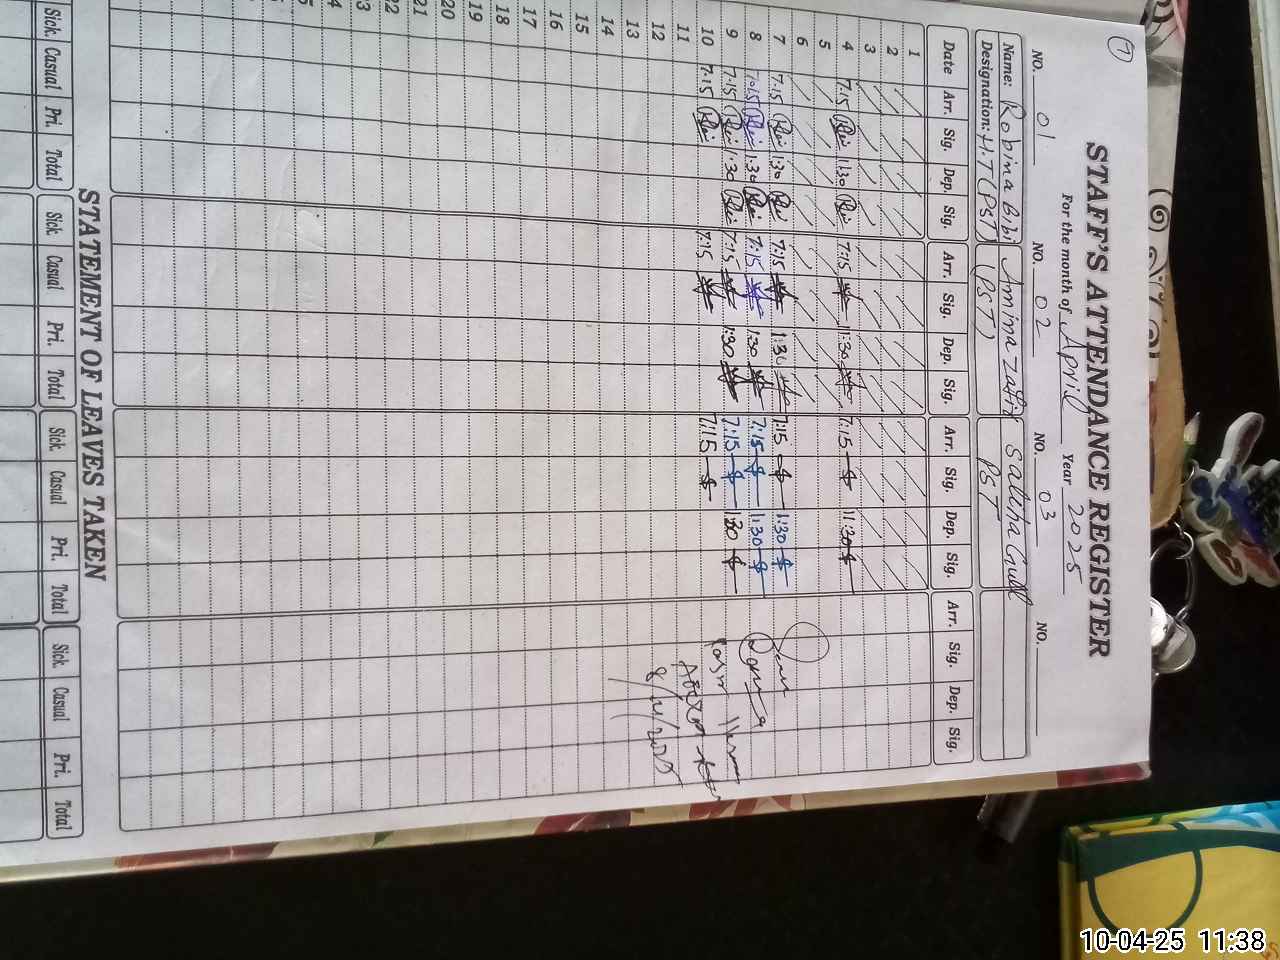 7
STAFF'S ATTENDANCE REGISTER
For the month of April Year 2025
NO. 01 NO. 02 NO. 03 NO.
Name: Robina Bibi Amina Zafir Saleha Gull
Designation: H.T (PST) (PST) PST
Date Arr. Sig. Dep. Sig. Arr. Sig. Dep. Sig. Arr. Sig. Dep. Sig. Arr. Sig. Dep. Sig.
1
2
3
4 7:15 11:30 7:15 11:30 7:15 11:30
5
6
7 7:15 1:30 7:15 1:30 7:15 1:30
8 7:15 1:30 7:15 1:30 7:15 1:30
9 7:15 1:30 7:15 1:30 7:15 1:30
10 7:15 7:15 7:15
11
12
13
14
15
16
17
18
19
20
21
22
STATEMENT OF LEAVES TAKEN
Sick. Casual Pri. Total Sick Casual Pri. Total Sick Casual Pri. Total Sick Casual Pri. Total
10-04-25 11:38